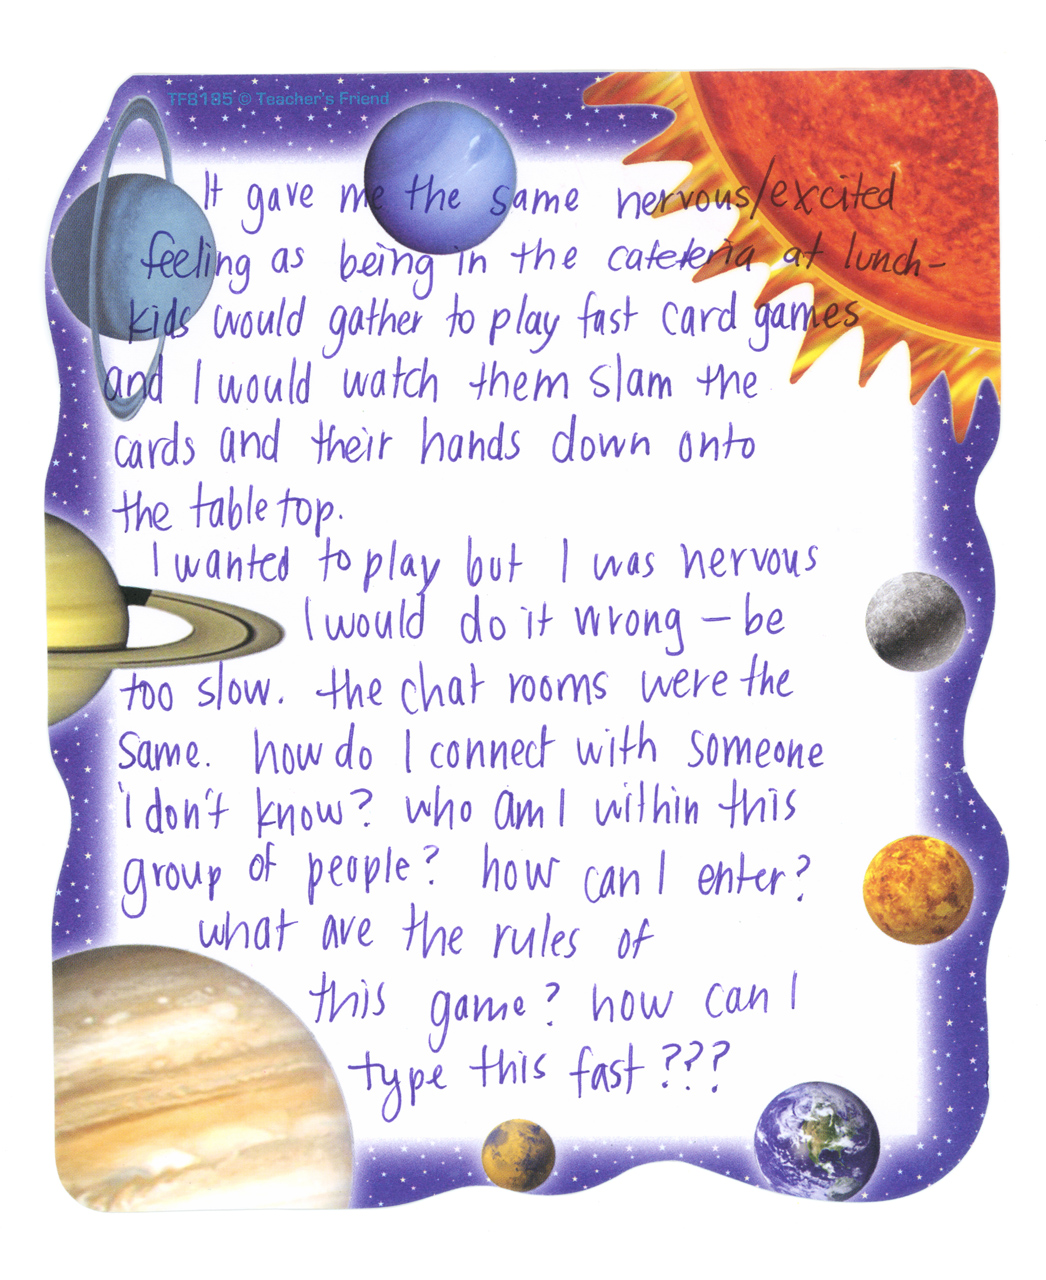 TF8105 © Teacher's Friend
It gave me the same nervous/excited
feeling as being in the cafeteria at lunch-
kids would gather to play fast card games
and I would watch them slam the
cards and their hands down onto
the table top.
I wanted to play but I was nervous
I would do it wrong – be
too slow. the chat rooms were the
same. how do I connect with someone
I don't know? who am I within this
group of people? how can I enter?
what are the rules of
this game? how can I
type this fast???